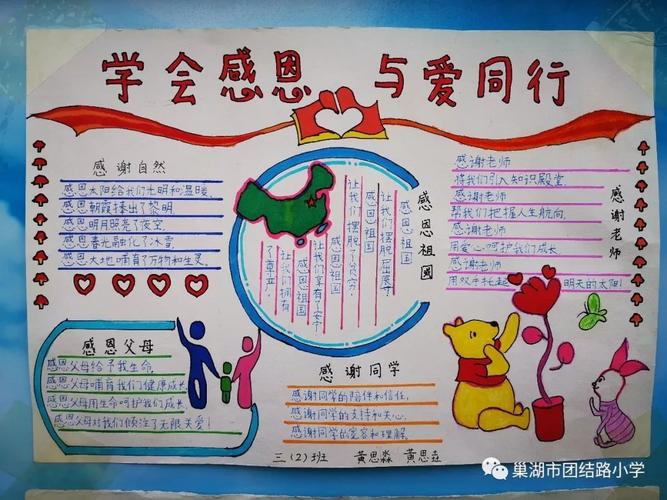 学会感恩 与爱同行
感谢自然
感恩太阳给我们光明和温暖,
感恩朝霞捧出了黎明,
感恩明月照亮了夜空,
感恩春光融化了冰雪,
感恩大地哺育了万物和生灵。
感恩祖国
感恩祖国
让我们摆脱
感恩祖国
让我们摆脱了贫穷,
感恩祖国
让我们享有了安宁
感恩祖国
让我们拥有
了尊严。
感谢老师
感谢老师
将我们引入知识殿堂,
感谢老师
帮我们把握人生航向,
感谢老师
用爱心呵护我们成长,
感谢老师
用双手托起 明天的太阳!
感恩父母
感恩父母给予我生命,
感恩父母哺育我们健康成长,
感恩父母用生命呵护我们成长,
感恩父母对我们倾注了无限关爱!
感谢同学
感谢同学的陪伴和信任,
感谢同学的支持和关心,
感谢同学的宽容和理解。
三(2)班 黄思淼 黄思垚
巢湖市团结路小学